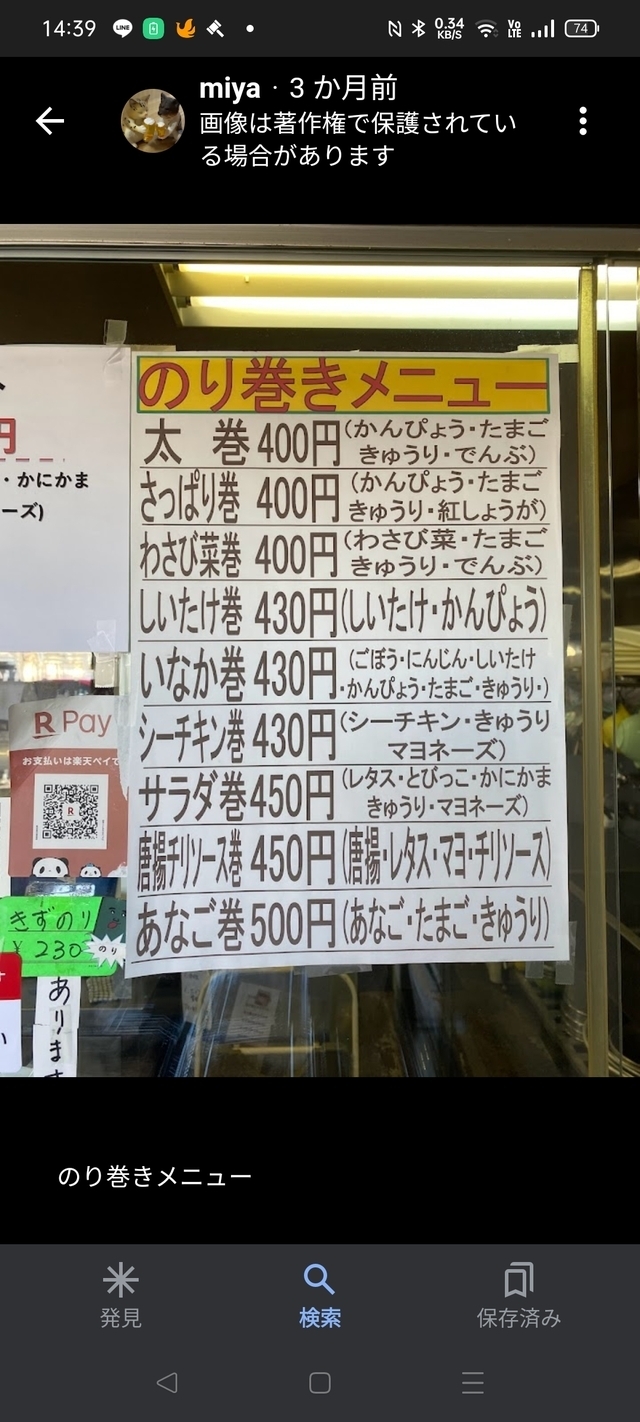 14:39
LINE
0.34
KB/S
Vo
LTE
74
miya · 3 か月前
画像は著作権で保護されてい
る場合があります
円
・かにかま
ーズ)
のり巻きメニュー
太 巻 400円(かんぴょう・たまご
きゅうり・でんぶ)
さっぱり巻 400円(かんぴょう・たまご
きゅうり・紅しょうが)
わさび菜巻 400円(わさび菜・たまご
きゅうり・でんぶ)
しいたけ巻 430円(しいたけ・かんぴょう)
いなか巻 430円(ごぼう・にんじん・しいたけ
・かんぴょう・たまご・きゅうり・)
シーチキン巻 430円(シーチキン・きゅうり
マヨネーズ)
サラダ巻 450円(レタス・とびっこ・かにかま
きゅうり・マヨネーズ)
唐揚チリソース巻 450円(唐揚・レタス・マヨ・チリソース)
あなご巻 500円(あなご・たまご・きゅうり)
R Pay
お支払いは楽天ペイで
R
きずのり
¥230
のり
あります
のり巻きメニュー
発見
検索
保存済み